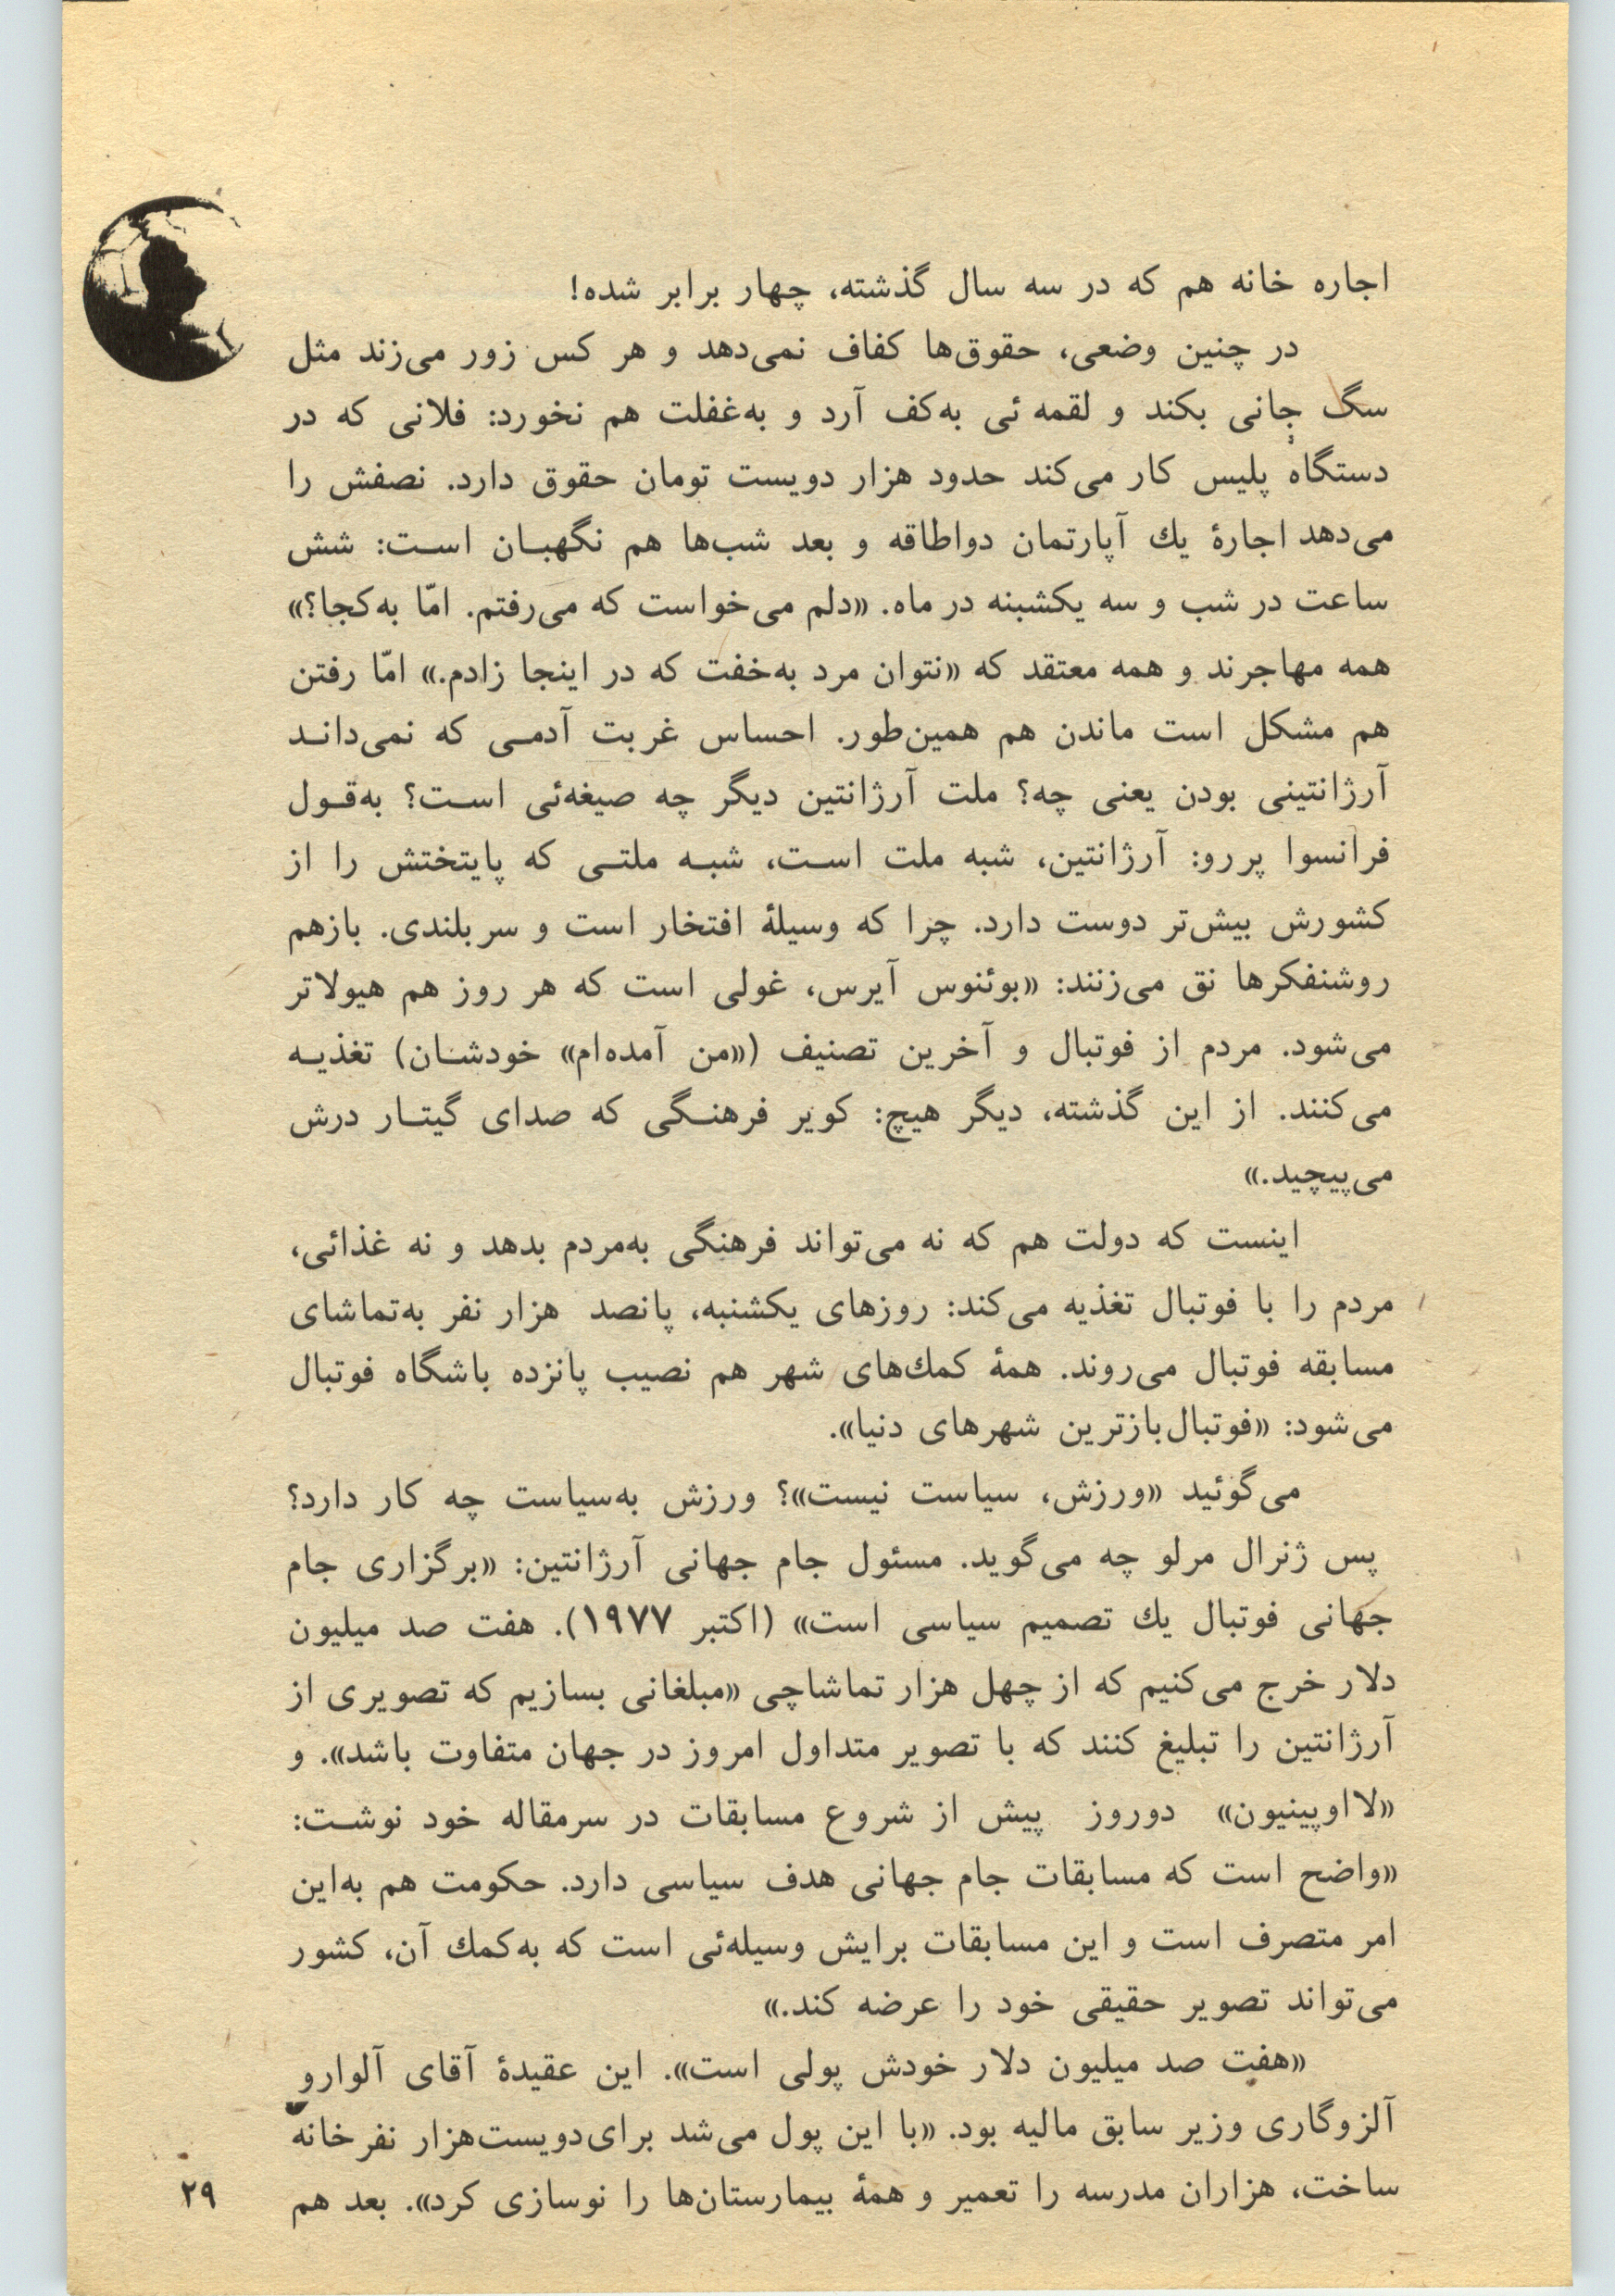 اجاره خانه هم که در سه سال گذشته، چهار برابر شده!
در چنین وضعی، حقوق‌ها کفاف نمی‌دهد و هر کس زور می‌زند مثل
سگ جانی بکند و لقمه ئی به‌کف آرد و به‌غفلت هم نخورد: فلانی که در
دستگاه پلیس کار می‌کند حدود هزار دویست تومان حقوق دارد. نصفش را
می‌دهد اجارهٔ یك آپارتمان دواطاقه و بعد شب‌ها هم نگهبـان اسـت: شش
ساعت در شب و سه یکشبنه در ماه. «دلم می‌خواست که می‌رفتم. امّا به‌کجا؟»
همه مهاجرند و همه معتقد که «نتوان مرد به‌خفت که در اینجا زادم.» امّا رفتن
هم مشکل است ماندن هم همین‌طور. احساس غربت آدمـی که نمی‌دانـد
آرژانتینی بودن یعنی چه؟ ملت آرژانتین دیگر چه صیغه‌ئی اسـت؟ به‌قـول
فرانسوا پررو: آرژانتین، شبه ملت اسـت، شبـه ملتـی که پایتختش را از
کشورش بیش‌تر دوست دارد. چرا که وسیلهٔ افتخار است و سربلندی. بازهم
روشنفکرها نق می‌زنند: «بوئنوس آیرس، غولی است که هر روز هم هیولاتر
می‌شود. مردم از فوتبال و آخرین تصنیف («من آمده‌ام» خودشـان) تغذیـه
می‌کنند. از این گذشته، دیگر هیچ: کویر فرهنـگی که صدای گیتـار درش
می‌پیچید.»
اینست که دولت هم که نه می‌تواند فرهنگی به‌مردم بدهد و نه غذائی،
مردم را با فوتبال تغذیه می‌کند: روزهای یکشنبه، پانصد هزار نفر به‌تماشای
مسابقه فوتبال می‌روند. همهٔ کمك‌های شهر هم نصیب پانزده باشگاه فوتبال
می‌شود: «فوتبال‌بازترین شهرهای دنیا».
می‌گوئید «ورزش، سیاست نیست»؟ ورزش به‌سیاست چه کار دارد؟
پس ژنرال مرلو چه می‌گوید. مسئول جام جهانی آرژانتین: «برگزاری جام
جهانی فوتبال یك تصمیم سیاسی است» (اکتبر ۱۹۷۷). هفت صد میلیون
دلار خرج می‌کنیم که از چهل هزار تماشاچی «مبلغانی بسازیم که تصویری از
آرژانتین را تبلیغ کنند که با تصویر متداول امروز در جهان متفاوت باشد». و
«لااوپینیون» دوروز پیش از شروع مسابقات در سرمقاله خود نوشـت:
«واضح است که مسابقات جام جهانی هدف سیاسی دارد. حکومت هم به‌این
امر متصرف است و این مسابقات برایش وسیله‌ئی است که به‌کمك آن، کشور
می‌تواند تصویر حقیقی خود را عرضه کند.»
«هفت صد میلیون دلار خودش پولی است». این عقیدهٔ آقای آلوارو
آلزوگاری وزیر سابق مالیه بود. «با این پول می‌شد برای‌دویست‌هزار نفرخانه
ساخت، هزاران مدرسه را تعمیر و همهٔ بیمارستان‌ها را نوسازی کرد». بعد هم
۲۹